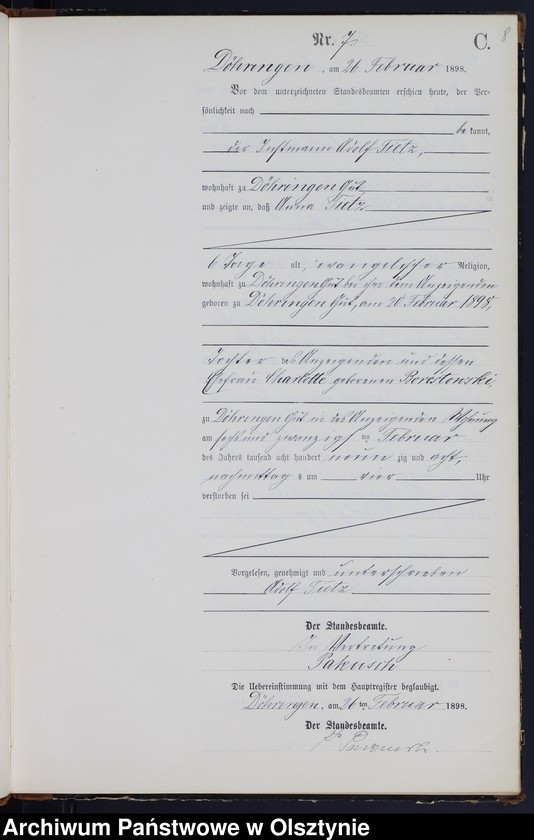 Nr. 7. C. 8
Döhringen, am 26 Februar 1898.
Vor dem unterzeichneten Standesbeamten erschien heute, der Per=
sönlichkeit nach
be kannt,
der Instmann Adolf Tietz,
wohnhaft zu Döhringen Gut
und zeigte an, daß Anna Tietz
6 Tage alt, evangelischer Religion,
wohnhaft zu Döhringen Gut bei dem Anzeigenden
geboren zu Döhringen Gut, am 20 Februar 1898,
Tochter des Anzeigenden und dessen
Ehefrau Charlotte geborenen
zu Döhringen Gut in des Anzeigenden Wohnung
am sechs und zwanzigsten Februar
des Jahres tausend acht hundert neun zig und acht,
nachmittag s um vier Uhr
verstorben sei
Vorgelesen, genehmigt und unterschrieben
Adolf Tietz
Der Standesbeamte.
In Vertretung
Die Uebereinstimmung mit dem Hauptregister beglaubigt.
Döhringen, am 26 ten Februar 1898.
Der Standesbeamte.
Archiwum Państwowe w Olsztynie